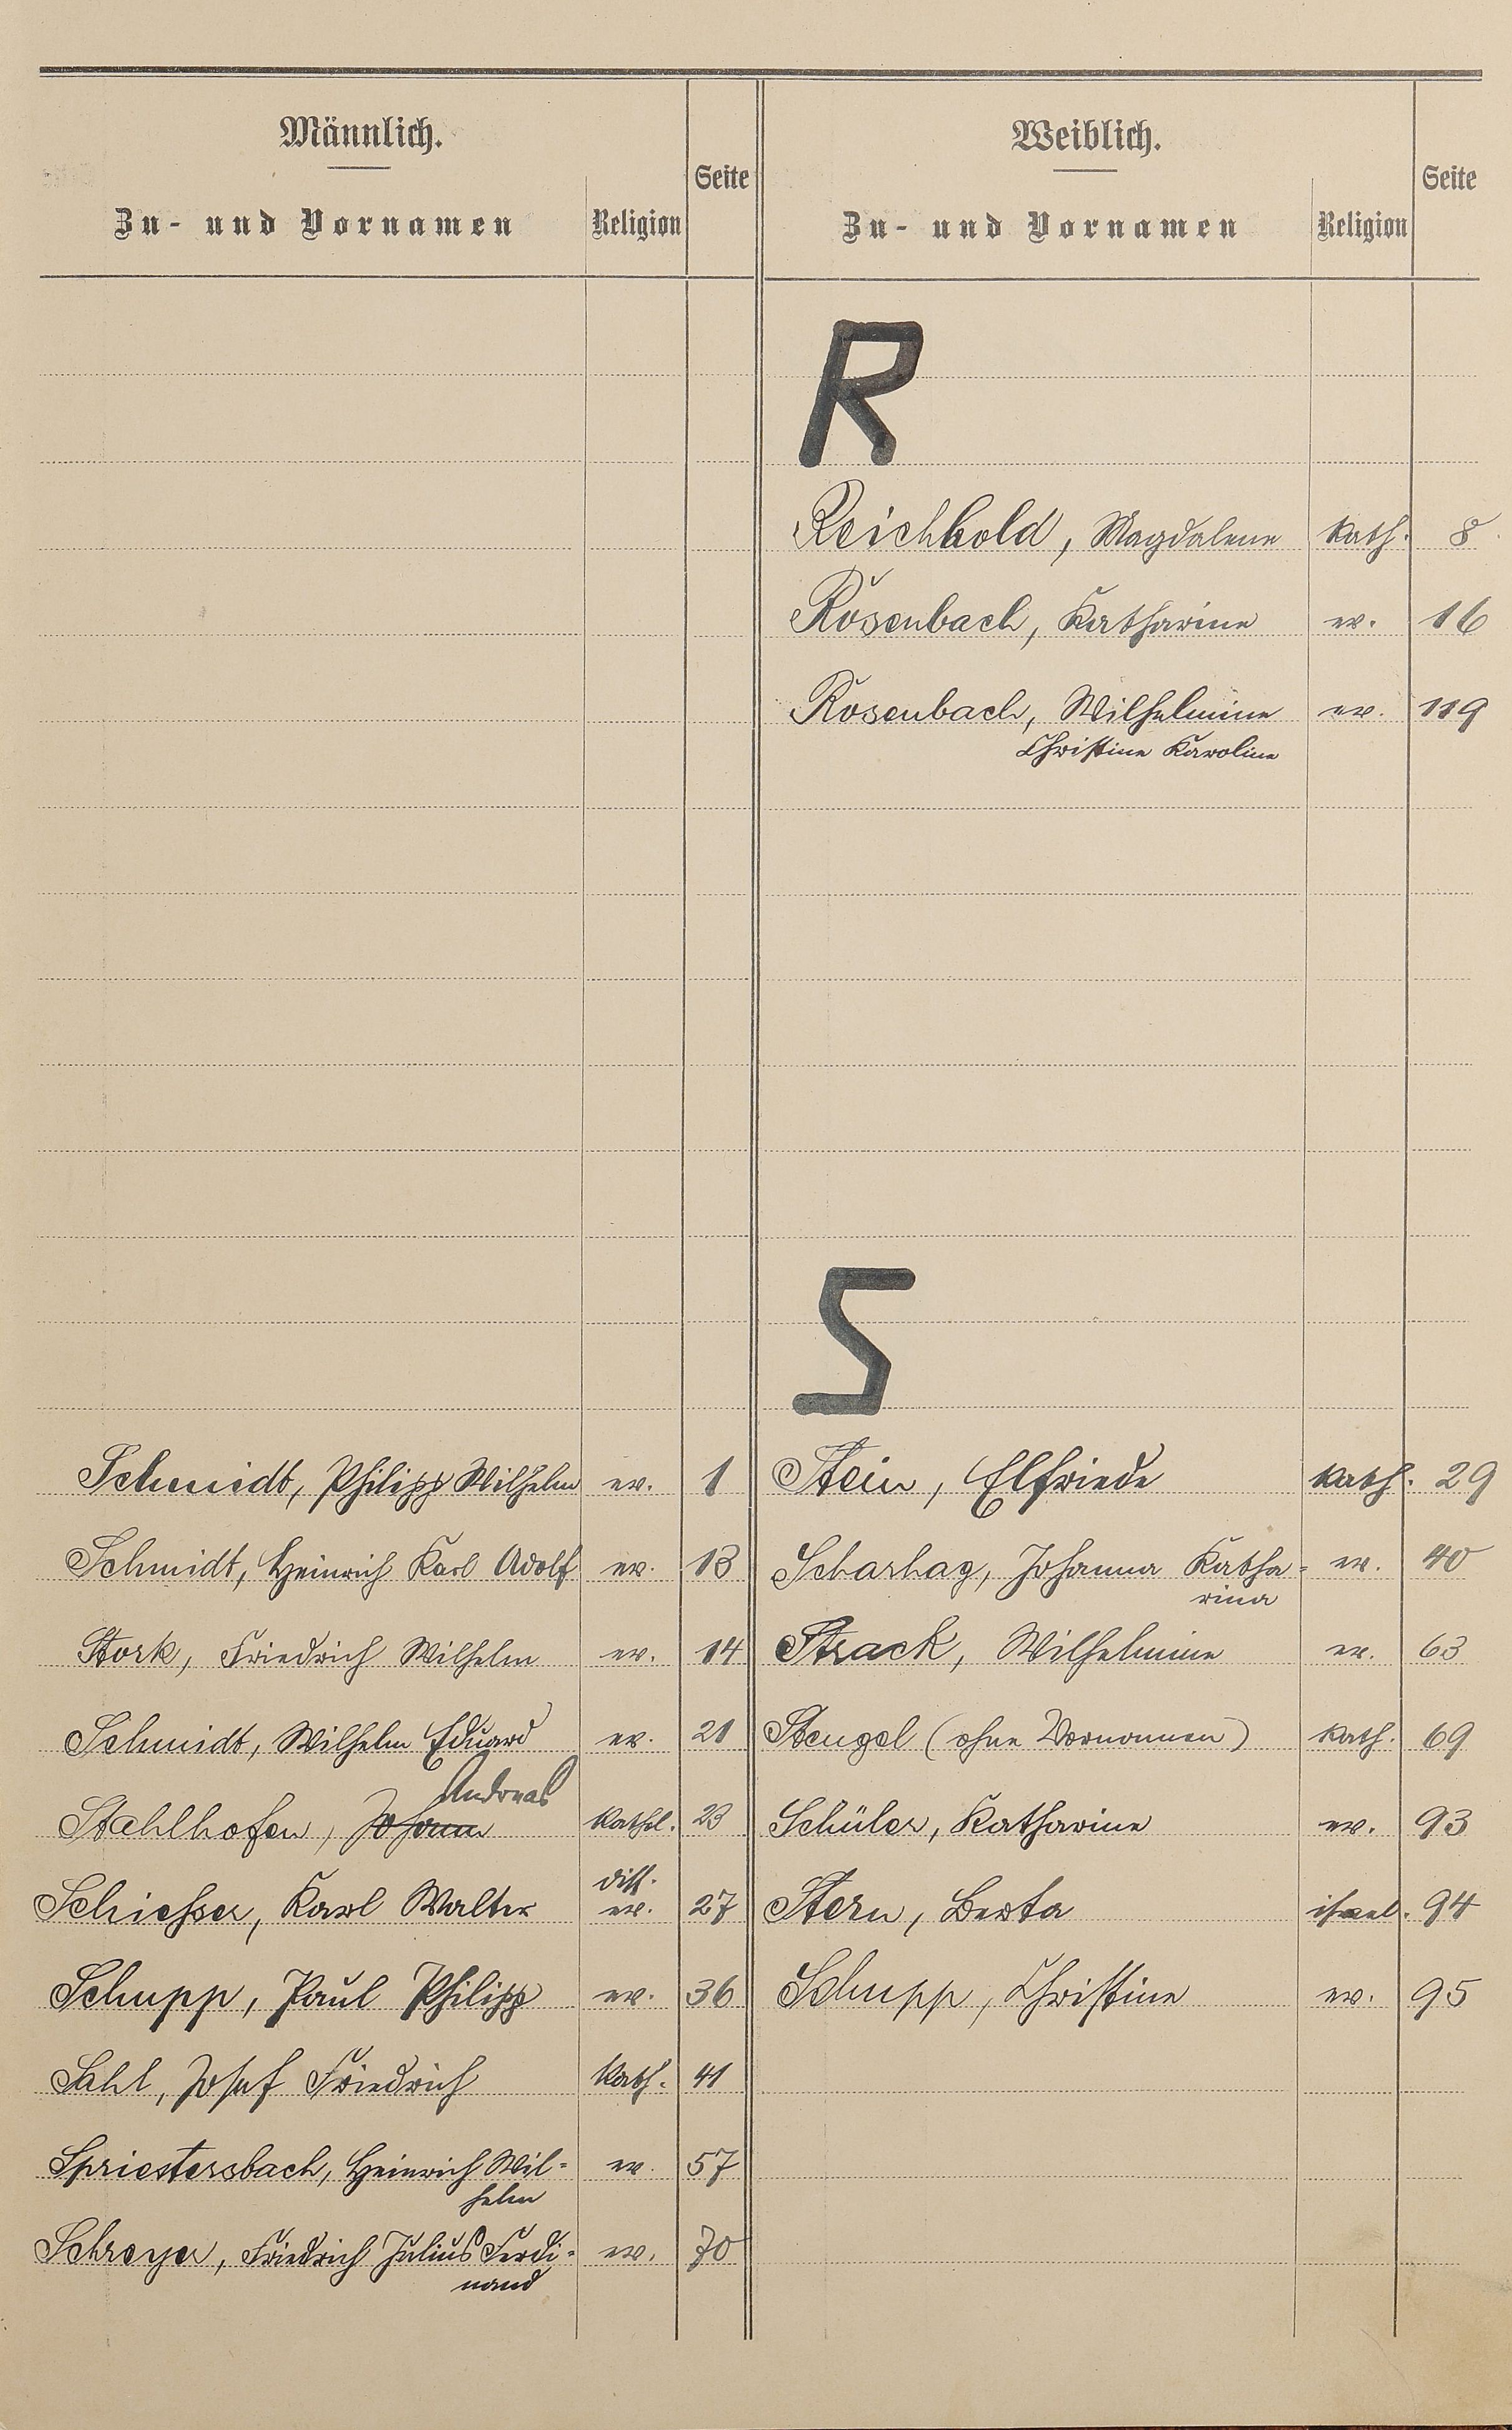 Männlich.
Zu- und Vornamen
Religion
Seite
Weiblich.
Zu- und Vornamen
Religion
Seite
R
Reichhold, Magdalene kath. 8
Rosenbach, Katharine ev. 16
Rosenbach, Wilhelmine ev. 119
Christine Karoline
S
Schmidt, Philipp Wilhelm ev. 1
Schmidt, Heinrich Karl Adolf ev. 13
Stork, Friedrich Wilhelm ev. 14
Schmidt, Wilhelm Eduard ev. 21
Andreas
Stahlhofen, Johann kathol. 23
diss.
Schiesser, Karl Walter ev. 27
Schupp, Paul Philipp ev. 36
Sahl, Josef Friedrich kath. 41
Spriestersbach, Heinrich Wil= ev. 57
helm
Schreyer, Friedrich Julius Ferdi= ev. 70
nand
Stein, Elfriede kath. 29
Scharhag, Johanna Katha= ev. 40
rina
Strack, Wilhelmine ev. 63
Stengel (ohne Vornamen) kath. 69
Schüler, Katharine ev. 93
Stern, Berta israel. 94
Schupp, Christine ev. 95